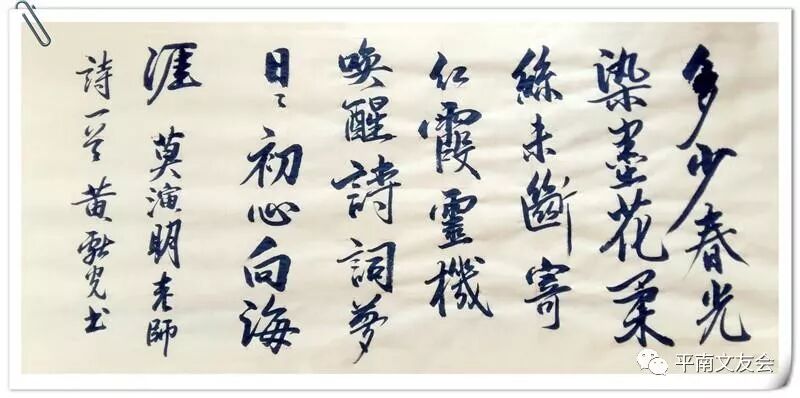 多少春光
染墨花柔
絲未斷寄
红霞靈機
喚醒詩詞夢
日々初心向海
涯 莫演明老師
詩一首 黄光书
平南文友会